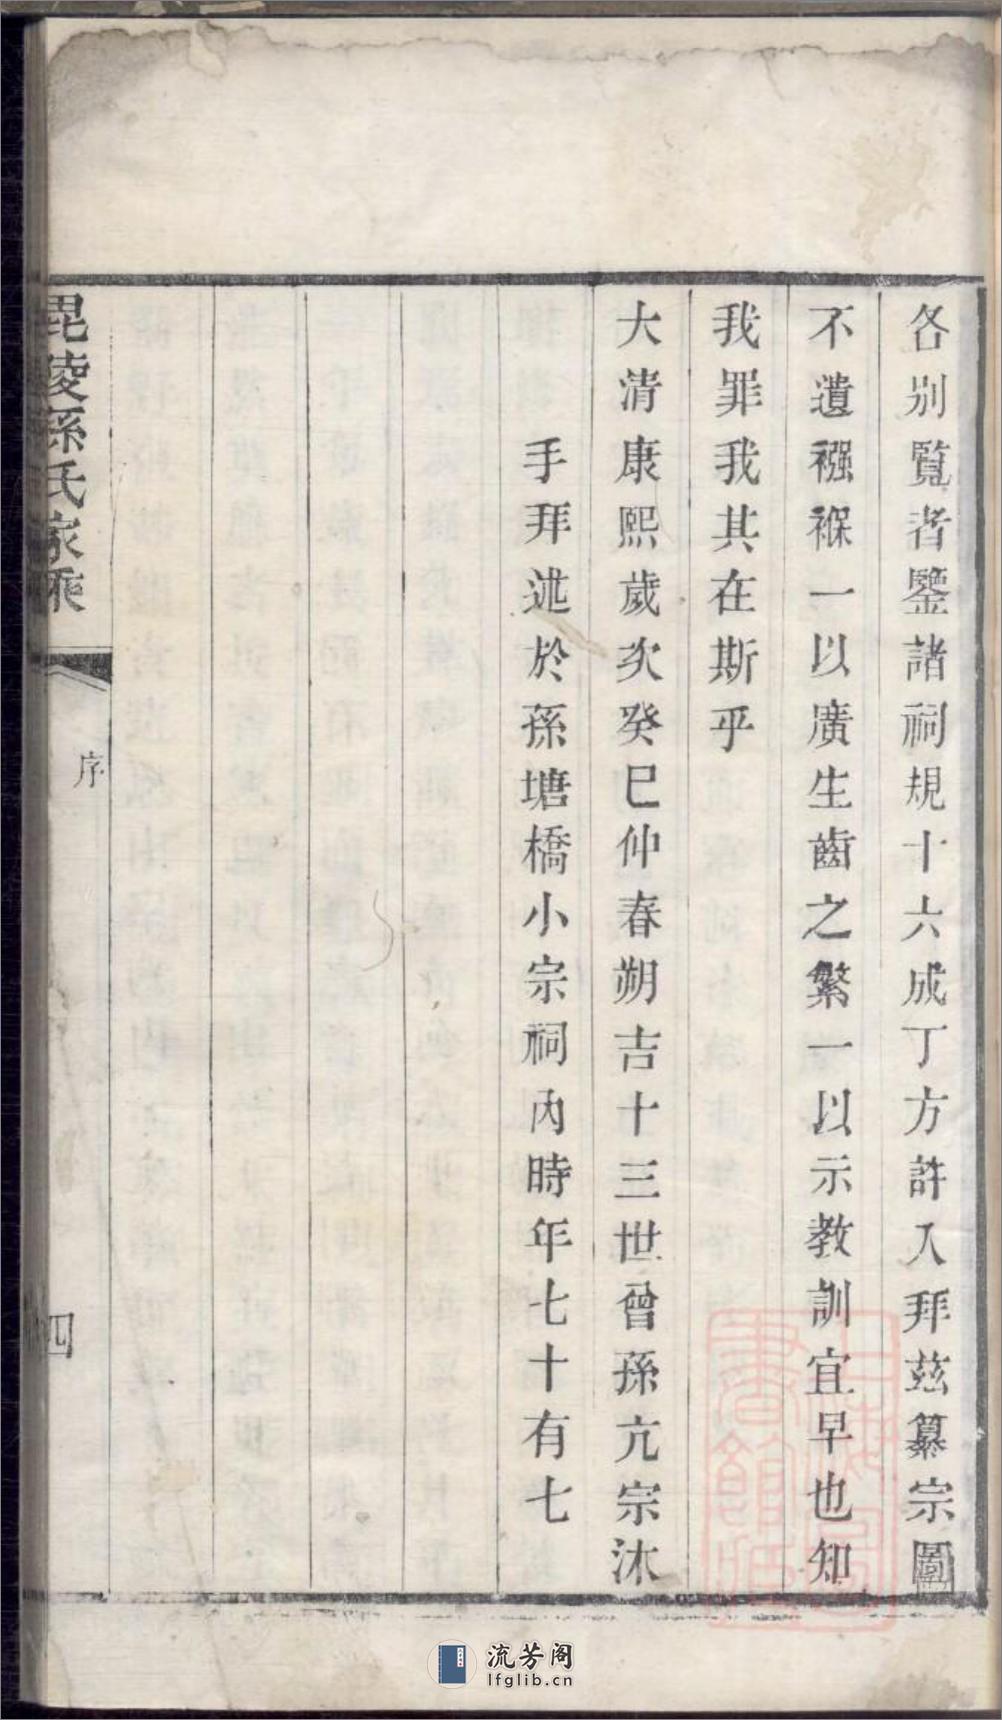 各别覧者鑒諸祠規十六成丁方許入拜兹纂宗圖
不遺襁褓一以廣生齒之繁一以示教訓宜早也知
我罪我其在斯乎
大清康熙歲次癸巳仲春朔吉十三世曾孫亢宗沐
手拜述於孫塘橋小宗祠內時年七十有七
毘陵孫氏家乘
序
四
流芳阁
lfglib.cn